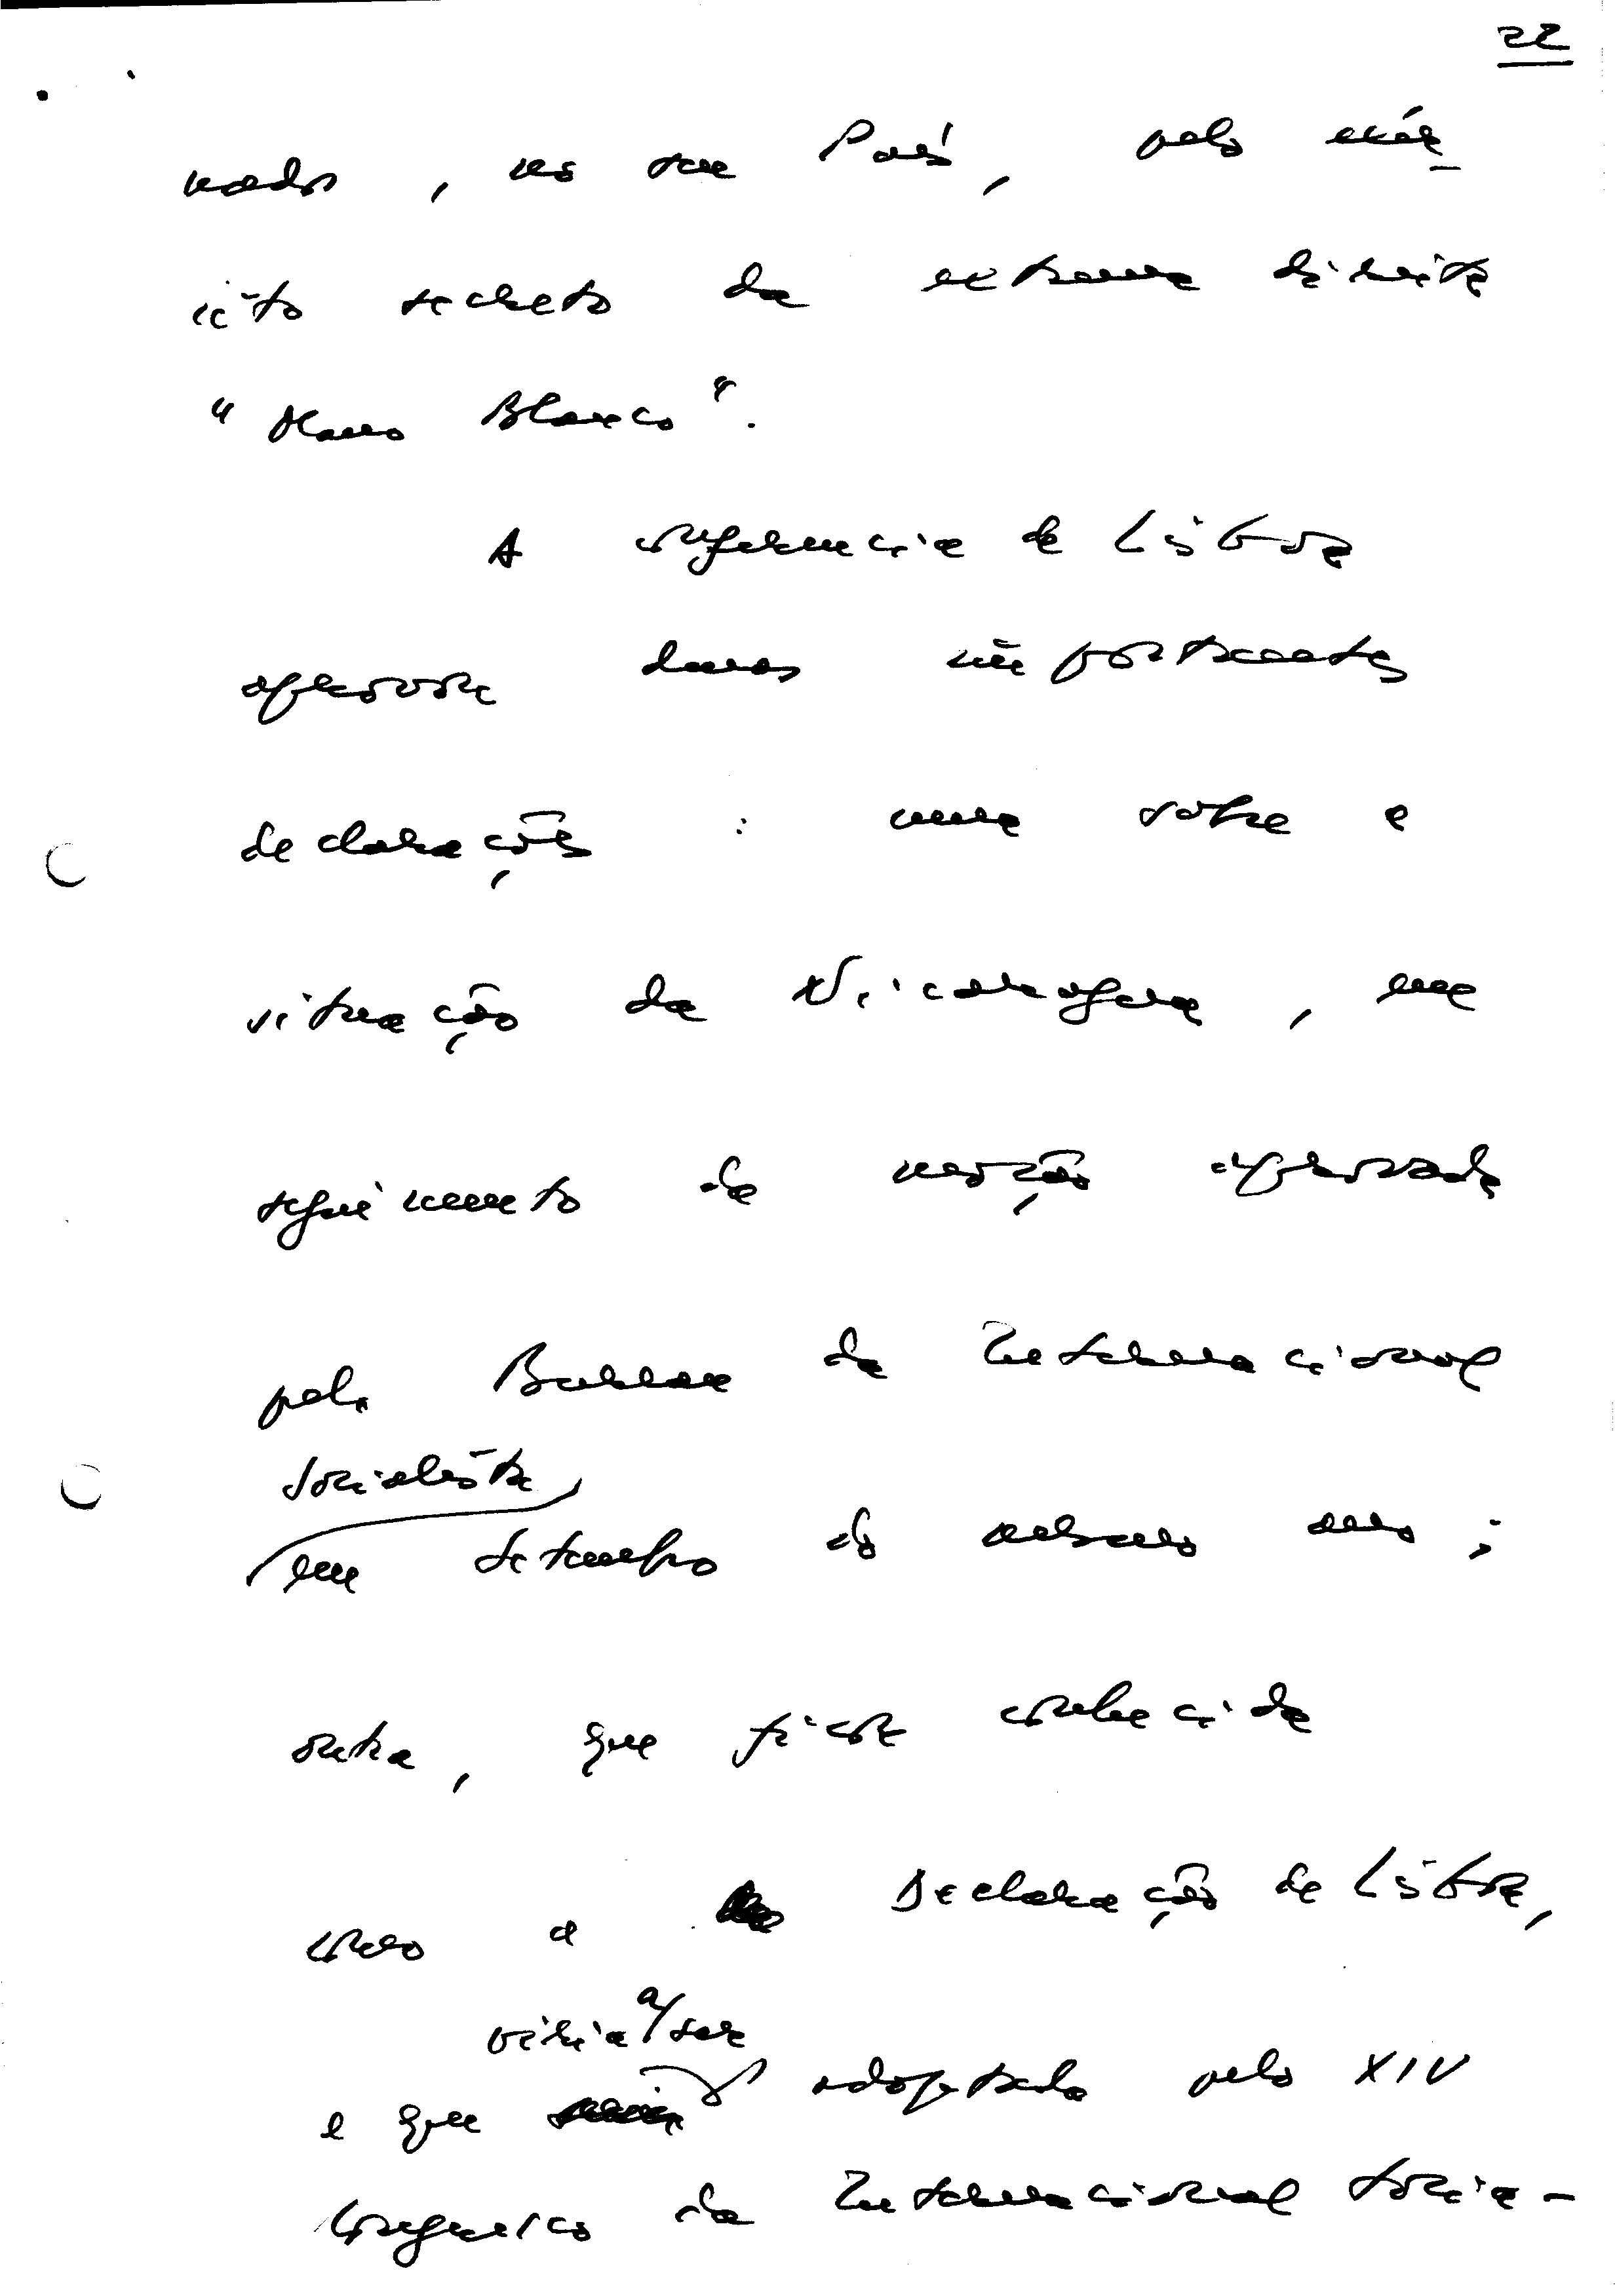 22
nado, no seu País, pelo exér-
cito secreto da extrema direita
"Mano Blanco".
A conferência de Lisboa
aprovou duas importantes
declarações: uma sobre a
situação da Nicarágua, no
seguimento da moção aprovada
pelo Bureau da Internacional
Socialista
em Setembro do mesmo ano;
outra, que ficou conhecida
como a Declaração de Lisboa,
viria a ser
e que adoptada pelo XIV
Congresso da Internacional Socia-